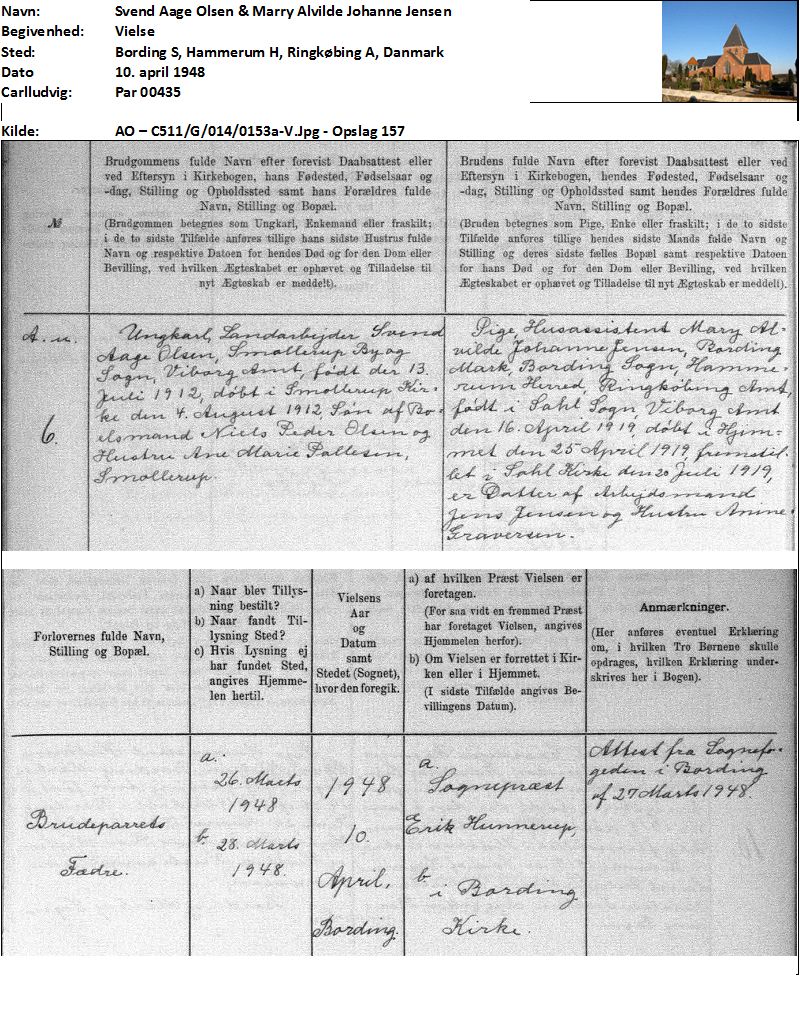 Navn: Svend Aage Olsen & Marry Alvilde Johanne Jensen
Begivenhed: Vielse
Sted: Bording S, Hammerum H, Ringkøbing A, Danmark
Dato 10. april 1948
Carlludvig: Par 00435
Kilde: AO – C511/G/014/0153a-V.Jpg - Opslag 157
№
Brudgommens fulde Navn efter forevist Daabsattest eller
ved Eftersyn i Kirkebogen, hans Fødested, Fødselsaar og
-dag, Stilling og Opholdssted samt hans Forældres fulde
Navn, Stilling og Bopæl.
(Brudgommen betegnes som Ungkarl, Enkemand eller fraskilt;
i de to sidste Tilfælde anføres tillige hans sidste Hustrus fulde
Navn og respektive Datoen for hendes Død og for den Dom eller
Bevilling, ved hvilken Ægteskabet er ophævet og Tilladelse til
nyt Ægteskab er meddelt).
Brudens fulde Navn efter forevist Daabsattest eller ved
Eftersyn i Kirkebogen, hendes Fødested, Fødselsaar og
-dag, Stilling og Opholdssted samt hendes Forældres fulde
Navn, Stilling og Bopæl.
(Bruden betegnes som Pige, Enke eller fraskilt; i de to sidste
Tilfælde anføres tillige hendes sidste Mands fulde Navn og
Stilling og deres sidste fælles Bopæl samt respektive Datoen
for hans Død og for den Dom eller Bevilling, ved hvilken
Ægteskabet er ophævet og Tilladelse til nyt Ægteskab er meddelt).
A. u.
6.
Ungkarl, Landarbejder Svend
Aage Olsen, Smollerup By og
Sogn, Viborg Amt, født der 13.
Juli 1912, døbt i Smollerup Kir-
ke den 4. August 1912, Søn af Bo-
elsmand Niels Peder Olsen og
Hustru Ane Marie Pallesen,
Smollerup.
Pige, Husassistent Mary Al-
vilde Johanne Jensen, Bording
Mark, Bording Sogn, Hamme-
rum Herred, Ringkøbing Amt,
født i Sahl Sogn, Viborg Amt
den 16. April 1919, døbt i Hjem-
met den 25 April 1919, fremstil-
let i Sahl Kirke den 20 Juli 1919,
er Datter af Arbejdsmand
Jens Jensen og Hustru Anine
Graversen.
Forlovernes fulde Navn,
Stilling og Bopæl.
a) Naar blev Tillys-
ning bestilt?
b) Naar fandt Til-
lysning Sted?
c) Hvis Lysning ej
har fundet Sted,
angives Hjemme-
len hertil.
Vielsens
Aar
og
Datum
samt
Stedet (Sognet),
hvor den foregik.
a) af hvilken Præst Vielsen er
foretagen.
(For saa vidt en fremmed Præst
har foretaget Vielsen, angives
Hjemmelen herfor).
b) Om Vielsen er forrettet i Kir-
ken eller i Hjemmet.
(I sidste Tilfælde angives Be-
villingens Datum).
Anmærkninger.
(Her anføres eventuel Erklæring
om, i hvilken Tro Børnene skulle
opdrages, hvilken Erklæring under-
skrives her i Bogen).
Brudeparrets
Fædre.
a.
26. Marts
1948
b. 28. Marts
1948.
1948
10.
April.
Bording.
a.
Sognepræst
Erik Hunnerup,
b
i Bording
Kirke.
Attest fra Sognefo-
geden i Bording
af 27 Marts 1948.